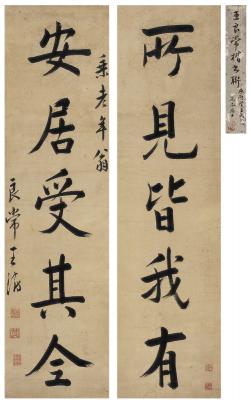 所見皆我有
安居受其全
秉老年翁
良常王澍
王良常楷書聯